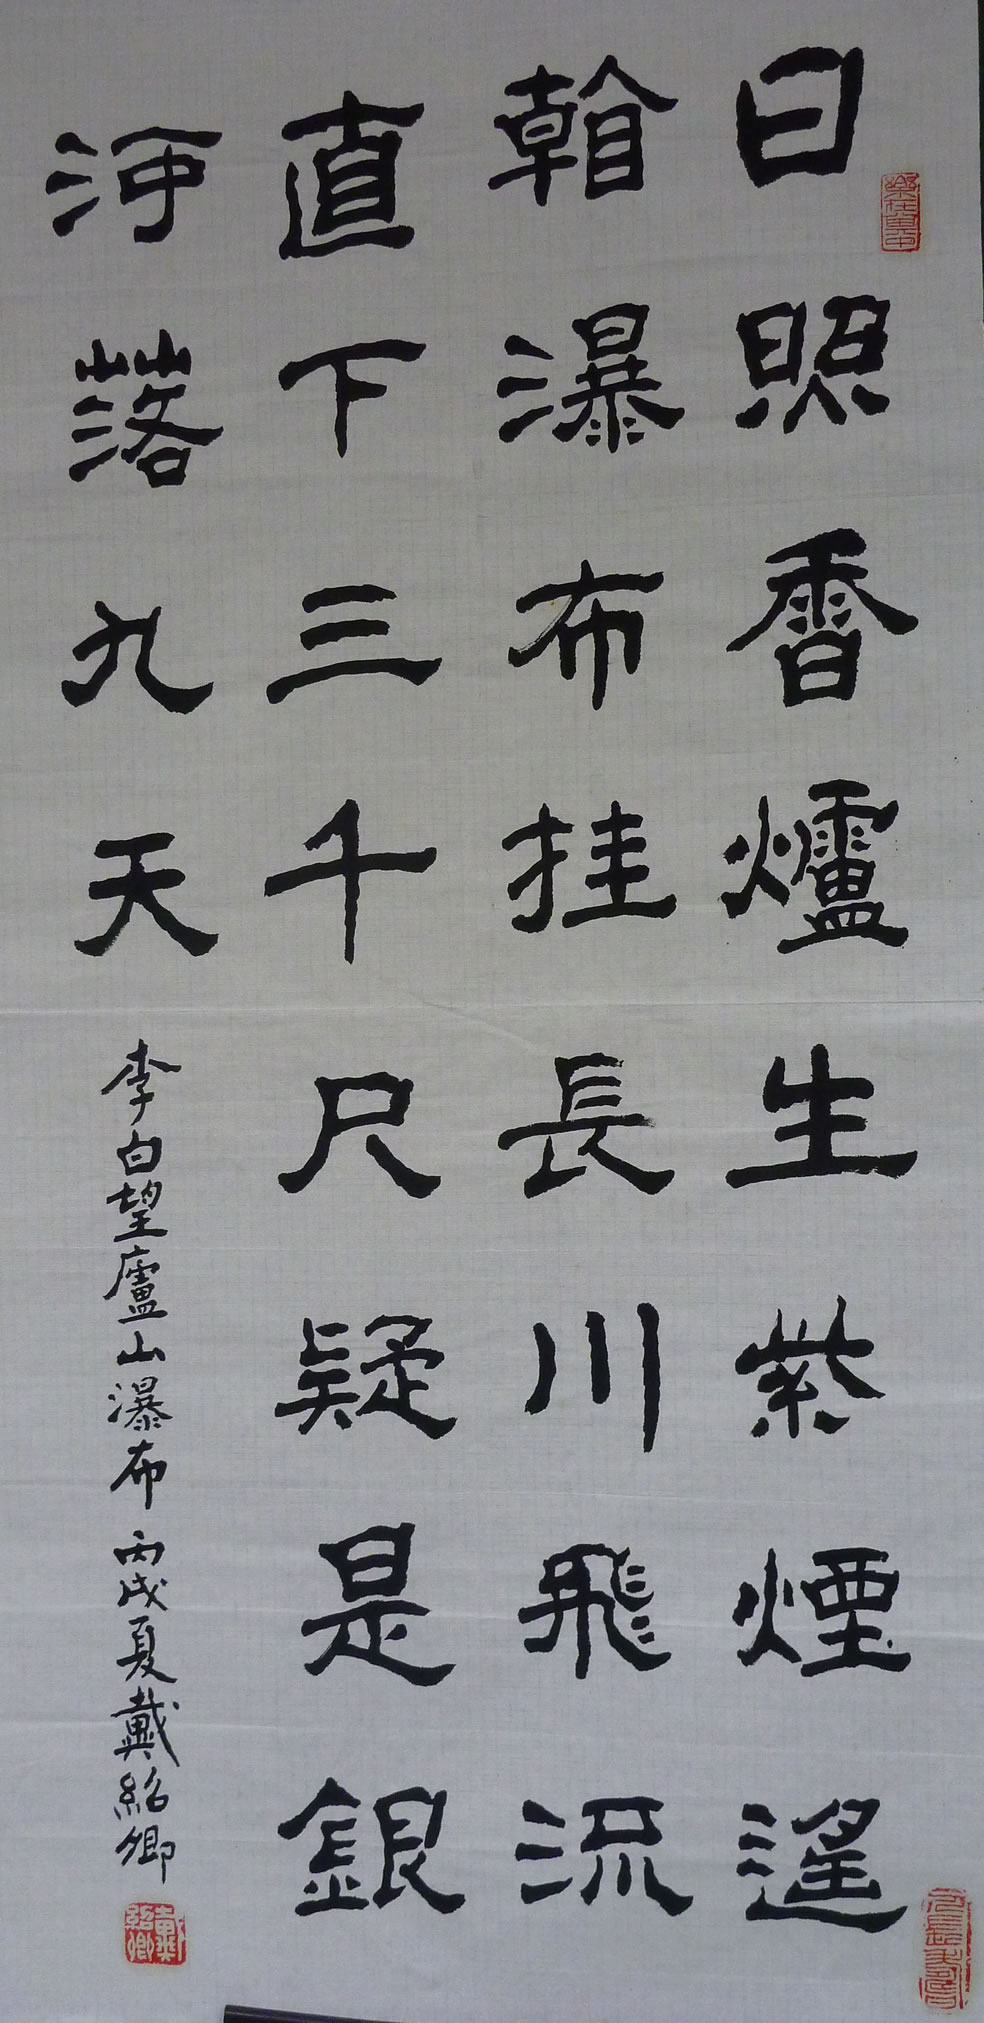 日照香爐生紫煙遙
看瀑布挂長川飛流
直下三千尺疑是銀
河落九天
李白望廬山瀑布 丙戌夏戴紹卿
戴紹卿
樂在其中